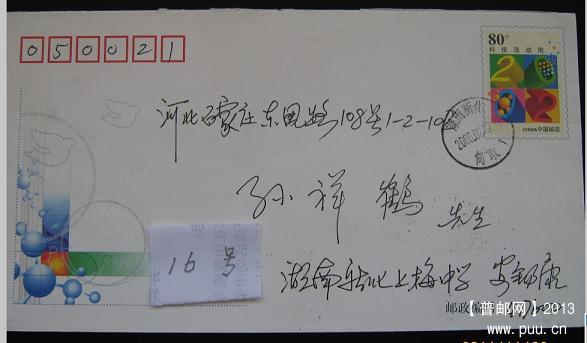 050021
80分
科技活动周
2002
CHINA中国邮政
河北石家庄东风路108号1-2-10
孙祥鹤 先生
16号
湖南新化上梅中学
邮政编码
【普邮网】2013
www.puu.cn